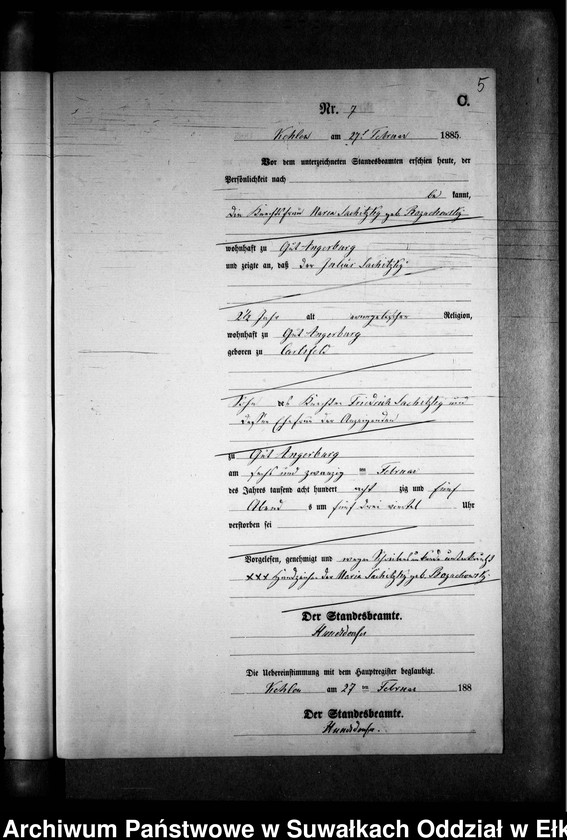 5
C.
Nr. 7
Kehlen am 27t Februar 1885.
Vor dem unterzeichneten Standesbeamten erschien heute, der
Persönlichkeit nach
be kannt,
die Knechtsfrau Maria Sackitzky geb. Rozachowsky
wohnhaft zu Gut Angerburg
und zeigte an, daß der Julius Sackitzky
2½ Jahr alt evangelischer Religion,
wohnhaft zu Gut Angerburg
geboren zu Carlsfeld
Sohn des Knechtes Friedrich Sackitzky und
dessen Ehefrau der Anzeigenden
zu Gut Angerburg
am sechs und zwanzig ten Februar
des Jahres tausend acht hundert acht zig und fünf
Abend s um fünf drei viertel Uhr
verstorben sei
Vorgelesen, genehmigt und wegen Schreibensunkunde unterkreuzt
xxx Handzeichen der Maria Sackitzky geb. Rozachowsky.
Der Standesbeamte.
Die Uebereinstimmung mit dem Hauptregister beglaubigt.
Kehlen am 27 ten Februar 188
Der Standesbeamte.
Archiwum Państwowe w Suwałkach Oddział w Ełk